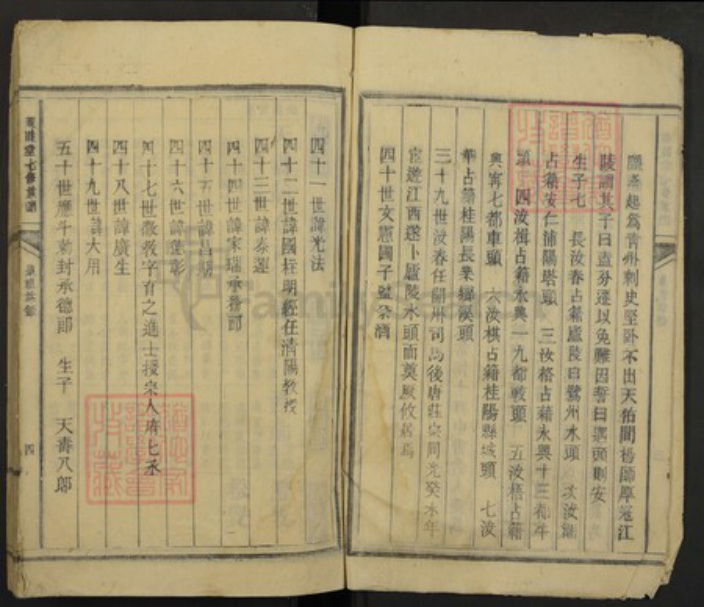 起為青州刺史堅卧不出天祐間楊師厚冦江
陵謂其子曰盍分遷以免難因誓曰遇頭則安
生子七　長汝春占籍廬陵白鷺州水頭　次汝
占籍安仁蒲陽塔頭　三汝格占籍永興十三都
頭　四汝楫占籍永興一九都　頭　五汝梧占籍
興寧七都車頭　六汝棋占籍桂陽縣城頭　七汝
華占籍桂陽長樂鄉溪頭
三十九世汝春任　州司馬後唐莊宗同光癸未年
宦遊江西遂卜廬陵水頭而奠厥攸居焉
四十世文憲國子監祭酒
四十一世諱光法
四十二世諱國柱明經任清陽教授
四十三世諱泰運
四十四世諱家瑞承務郎
四十五世諱昌期
四十六世諱　彰
四十七世徽教字育之進士授宋人府七丞
四十八世諱廣生
四十九世諱大用
五十世應斗勅封承德郎　生子　天壽八郎
七修族譜
四
FamilySearch